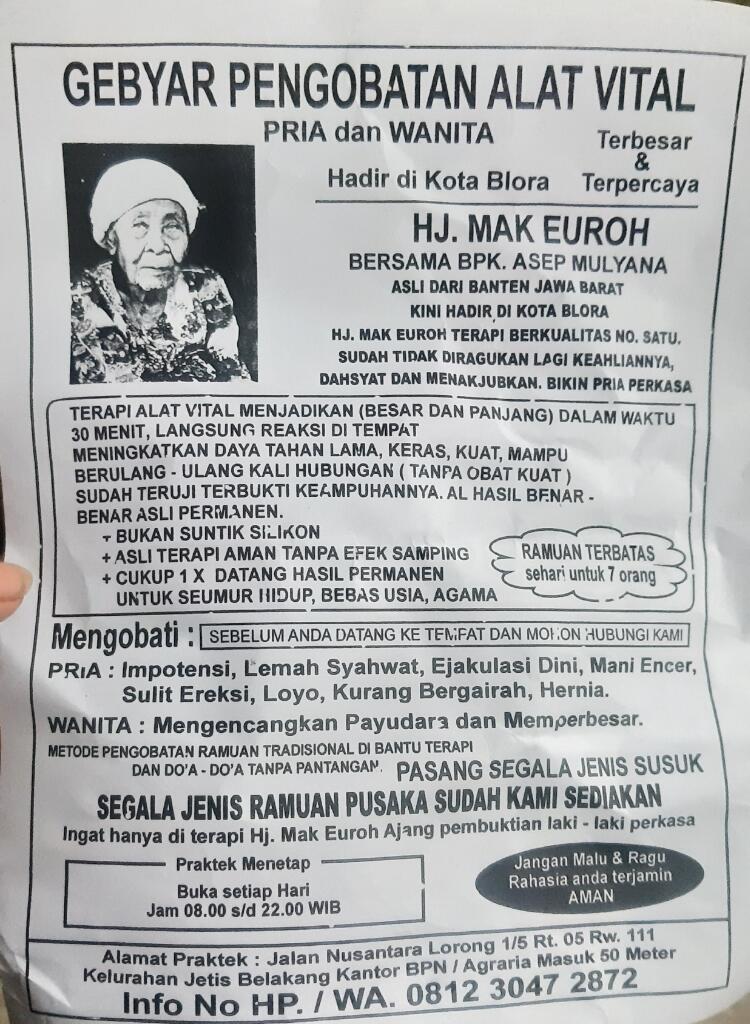 GEBYAR PENGOBATAN ALAT VITAL
PRIA dan WANITA
Terbesar
&
Terpercaya
Hadir di Kota Blora
HJ. MAK EUROH
BERSAMA BPK. ASEP MULYANA
ASLI DARI BANTEN JAWA BARAT
KINI HADIR DI KOTA BLORA
HJ. MAK EUROH TERAPI BERKUALITAS NO. SATU.
SUDAH TIDAK DIRAGUKAN LAGI KEAHLIANNYA,
DAHSYAT DAN MENAKJUBKAN. BIKIN PRIA PERKASA
TERAPI ALAT VITAL MENJADIKAN (BESAR DAN PANJANG) DALAM WAKTU
30 MENIT, LANGSUNG REAKSI DI TEMPAT
MENINGKATKAN DAYA TAHAN LAMA, KERAS, KUAT, MAMPU
BERULANG - ULANG KALI HUBUNGAN ( TANPA OBAT KUAT )
SUDAH TERUJI TERBUKTI KEAMPUHANNYA. AL HASIL BENAR -
BENAR ASLI PERMANEN.
+ BUKAN SUNTIK SILIKON
+ ASLI TERAPI AMAN TANPA EFEK SAMPING
+ CUKUP 1 X DATANG HASIL PERMANEN
UNTUK SEUMUR HIDUP, BEBAS USIA, AGAMA
RAMUAN TERBATAS
sehari untuk 7 orang
Mengobati : SEBELUM ANDA DATANG KE TEMPAT DAN MOHON HUBUNGI KAMI
PRIA : Impotensi, Lemah Syahwat, Ejakulasi Dini, Mani Encer,
Sulit Ereksi, Loyo, Kurang Bergairah, Hernia.
WANITA : Mengencangkan Payudara dan Memperbesar.
METODE PENGOBATAN RAMUAN TRADISIONAL DI BANTU TERAPI
DAN DO'A - DO'A TANPA PANTANGAN. PASANG SEGALA JENIS SUSUK
SEGALA JENIS RAMUAN PUSAKA SUDAH KAMI SEDIAKAN
Ingat hanya di terapi Hj. Mak Euroh Ajang pembuktian laki - laki perkasa
Praktek Menetap
Buka setiap Hari
Jam 08.00 s/d 22.00 WIB
Jangan Malu & Ragu
Rahasia anda terjamin
AMAN
Alamat Praktek : Jalan Nusantara Lorong 1/5 Rt. 05 Rw. 111
Kelurahan Jetis Belakang Kantor BPN / Agraria Masuk 50 Meter
Info No HP. / WA. 0812 3047 2872